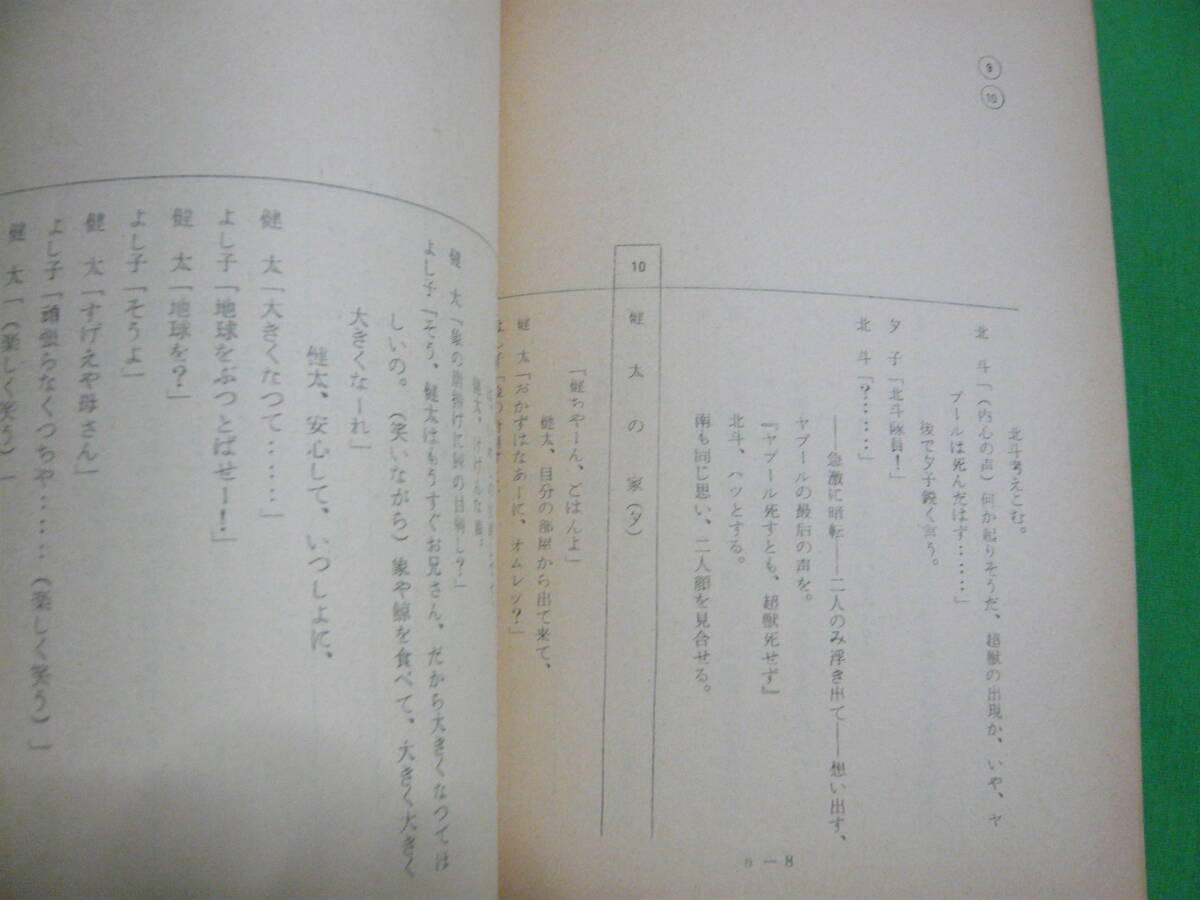 9
10
北斗考えこむ。
北 斗「(内心の声)何か起りそうだ、超獣の出現か、いや、ヤ
プールは死んだはず‥‥‥」
後で夕子鋭く言う。
夕 子「北斗隊員!」
北 斗「?‥‥‥」
――急激に暗転――二人のみ浮き出て――想い出す、
ヤプールの最后の声を。
『ヤプール死すとも、超獣死せず』
北斗、ハッとする。
南も同じ思い、二人顔を見合せる。
10 健太の家(夕)
「健ちやーん、ごはんよ」
健太、自分の部屋から出て来て、
健 太「おかずはなあーに、オムレツ?」
健太、けげんな顔。
健 太「象の
よし子「そう、健太はもうすぐお兄さん、だから大きくなつてほ
しいの。(笑いながら)象や鯨を食べて、大きく大きく
大きくなーれ」
健太、安心して、いつしよに、
健 太「大きくなつて‥‥‥」
よし子「地球をぶつとばせー!」
健 太「地球を?」
よし子「そうよ」
健 太「すげえや母さん」
よし子「頑張らなくつちや‥‥‥(楽しく笑う)」
健 太「(楽しく笑う)」
8 — 8